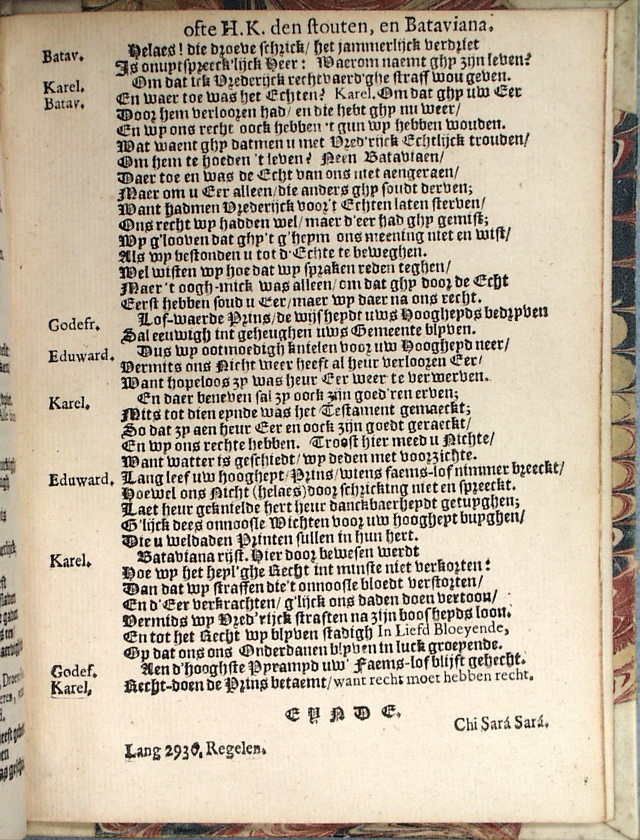 ofte H.K. den stouten, en Bataviana.
Batav. Helaes! die droeve schrick/ het jammerlijck verdriet
Is onuptspreeck'lijck Heer: Waerom naemt ghy zijn leven?
Karel. Om dat ick Vrederijck rechtvaerd'ghe straff wou geven.
Batav. En waer toe was het Echten? Karel. Om dat ghy uw Eer
Door hem verlooren had/ en die hebt ghy nu weer/
En wy ons recht oock hebben 't gun wy hebben wouden.
Wat waent ghy datmen u met Vred'rijck Echtlijck trouden/
Om hem te hoeden 't leven? Neen Bataviaen/
Daer toe en was de Echt van ons niet aengeraen/
Maer om u Eer alleen/die anders ghy soudt derven;
Want hadmen Vrederijck voor't Echten laten sterven/
Ons recht wy hadden wel/ maer d'eer had ghy gemist;
Wy g'looven dat ghy't g'heym ons meening niet en wist/
Als wy bestonden u tot d'Echte te beweghen.
Wel wisten wy hoe dat wy spraken reden teghen/
Maer 't oogh-mick was alleen/ om dat ghy door de Echt
Eerst hebben soud u Eer/ maer wy daer na ons recht.
Godefr. Lof-waerde Prins/ de wijsheydt uws Hoogheyds bedryven
Sal eeuwigh int geheughen uws Gemeente blyven.
Eduward. Dus wy ootmoedigh knielen voor uw Hoogheyd neer/
Vermits ons Nicht weer heeft al heur verlooren Eer/
Want hopeloos zy was heur Eer weer te verwerven.
Karel. En daer beneven sal zy oock zijn goed'ren erven;
Mits tot dien eynde was het Testament gemaeckt;
So dat zy aen heur Eer en oock zijn goedt geraeckt/
En wy ons rechte hebben. Troost hier meed u Nichte/
Want watter is geschiedt/ wy deden met voorzichte.
Eduward. Lang leef uw hooghept/ Prins/ wiens faems-lof nimmer breeckt/
Hoewel ons Nicht (helaes) door schricking niet en spreeckt.
Laet heur geknielde hert heur danckbaerheydt getuyghen;
G'lijck dees onnoosle Wichten voor uw hoogheyt buyghen/
Die u weldaden Printen sullen in hun hert.
Karel. Bataviana rijst. Hier door bewesen werdt
Hoe wy het heyl'ghe Recht int minste niet verkorten:
Dan dat wy straffen die't onnoosle bloedt verstorten/
En d'Eer verkrachten/ g'lijck ons daden doen vertoon/
Vermids wy Vred'rijck straften na zijn boosheyds loon.
En tot het Recht wy blyven stadigh In Liefd Bloeyende,
Op dat ons ons Onderdanen blyven in luck groeyende.
Godef. Aen d'hooghste Pyrampd uw' Faems-lof blijft gehecht.
Karel, Recht-doen de Prins betaemt/ want recht moet hebben recht.
EYNDE.
Chi Sará Sará.
Lang 2930. Regelen.